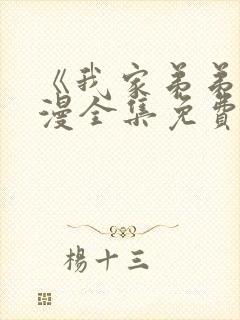 《我家弟弟
漫全集免費
楊十三